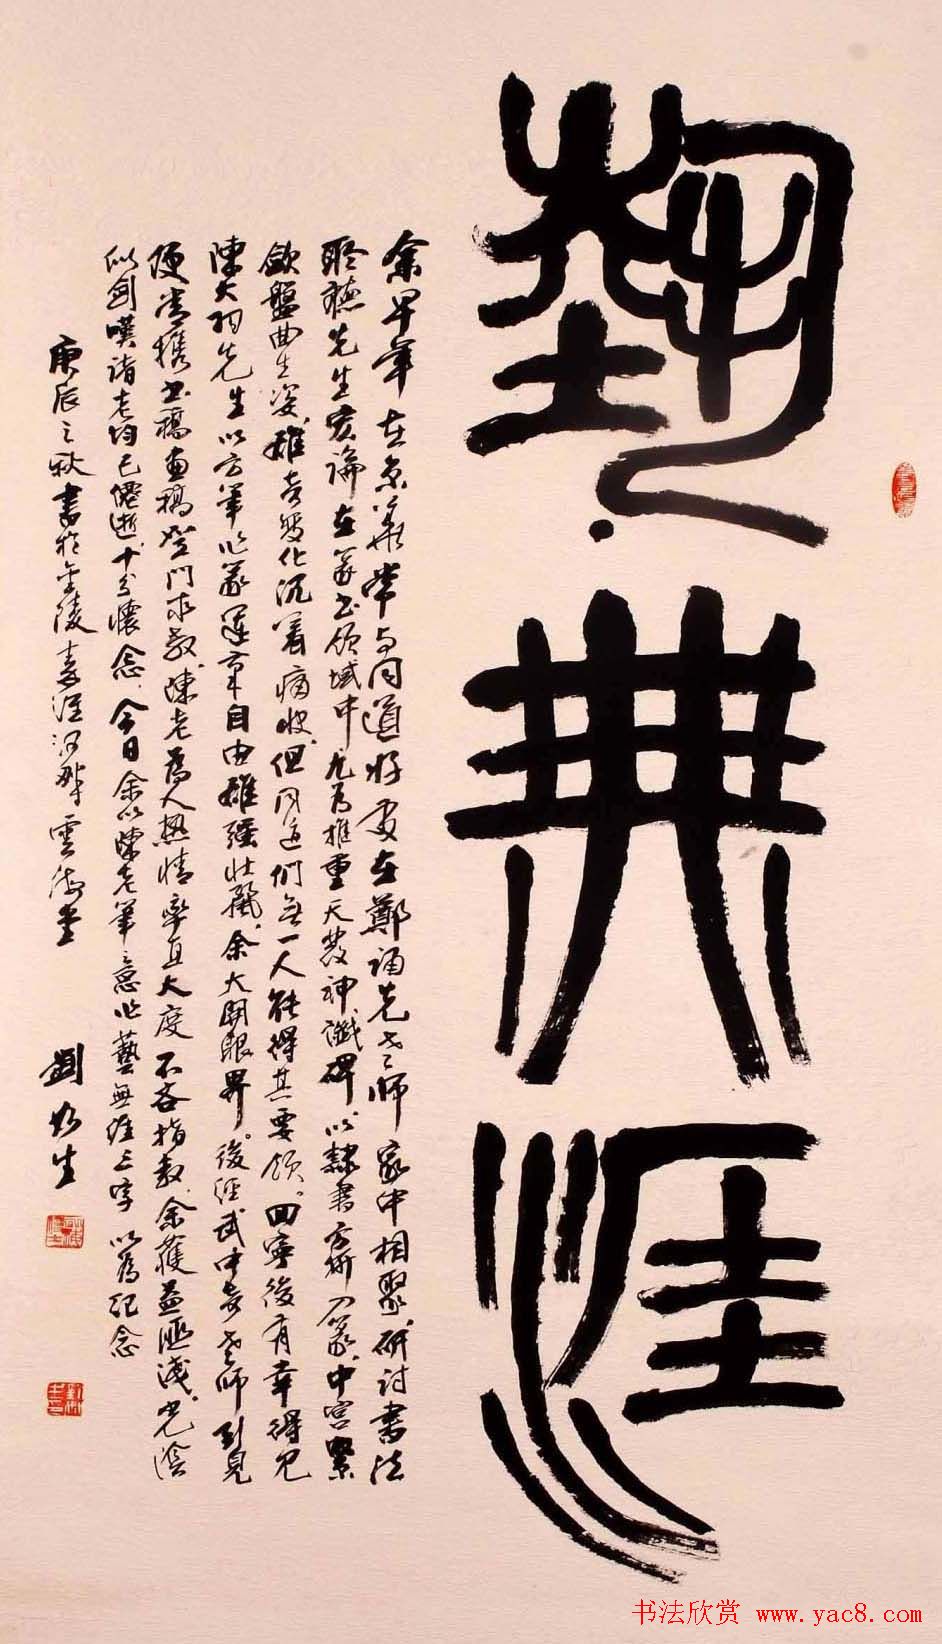 藝無涯
余早年在京華常与同道好友在鄭誦先老師家中相聚研討書法
聆聽先生宏論在篆书领域中尤为推重天发神讖碑以隸書方折入篆中宫緊
歛盤曲生姿雄奇变化沉着痛快但同道们无一人能得其要领回寧後有幸得见
陳大羽先生以方筆作篆運筆自由雄强壮麗余大開眼界後經武中奇老师引見
便常携书稿画稿登门求教陳老为人熱情率直大度不吝指教余獲益匪浅光陰
似劍嘆諸老均已僊逝十分懷念今日余以陳老筆意作藝無涯三字以為纪念
庚辰之秋書於金陵秦淮河畔雲海堂 劉 生
书法欣赏 www.yac8.com